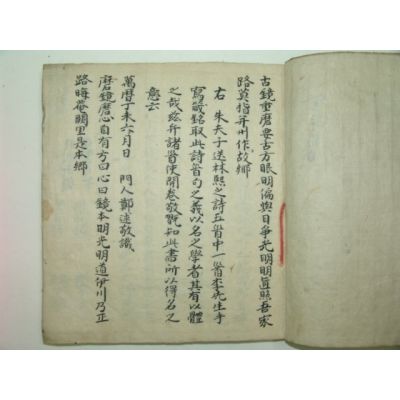 古鏡重磨要古方眼明偏與日爭光明明直照吾家
路莫指并州作故鄉
右 朱夫子送林熙之詩五首中一首李先生手
寫箴銘取此詩首句之義以名之學者其有以體
之哉玆弁諸首使開卷敬翫知此書所以得名之
意云
萬曆丁未六月日 門人鄭逑敬識
磨鏡磨心自有方曰心曰鏡本明光明道伊川乃正
路晦菴闕里是本鄉